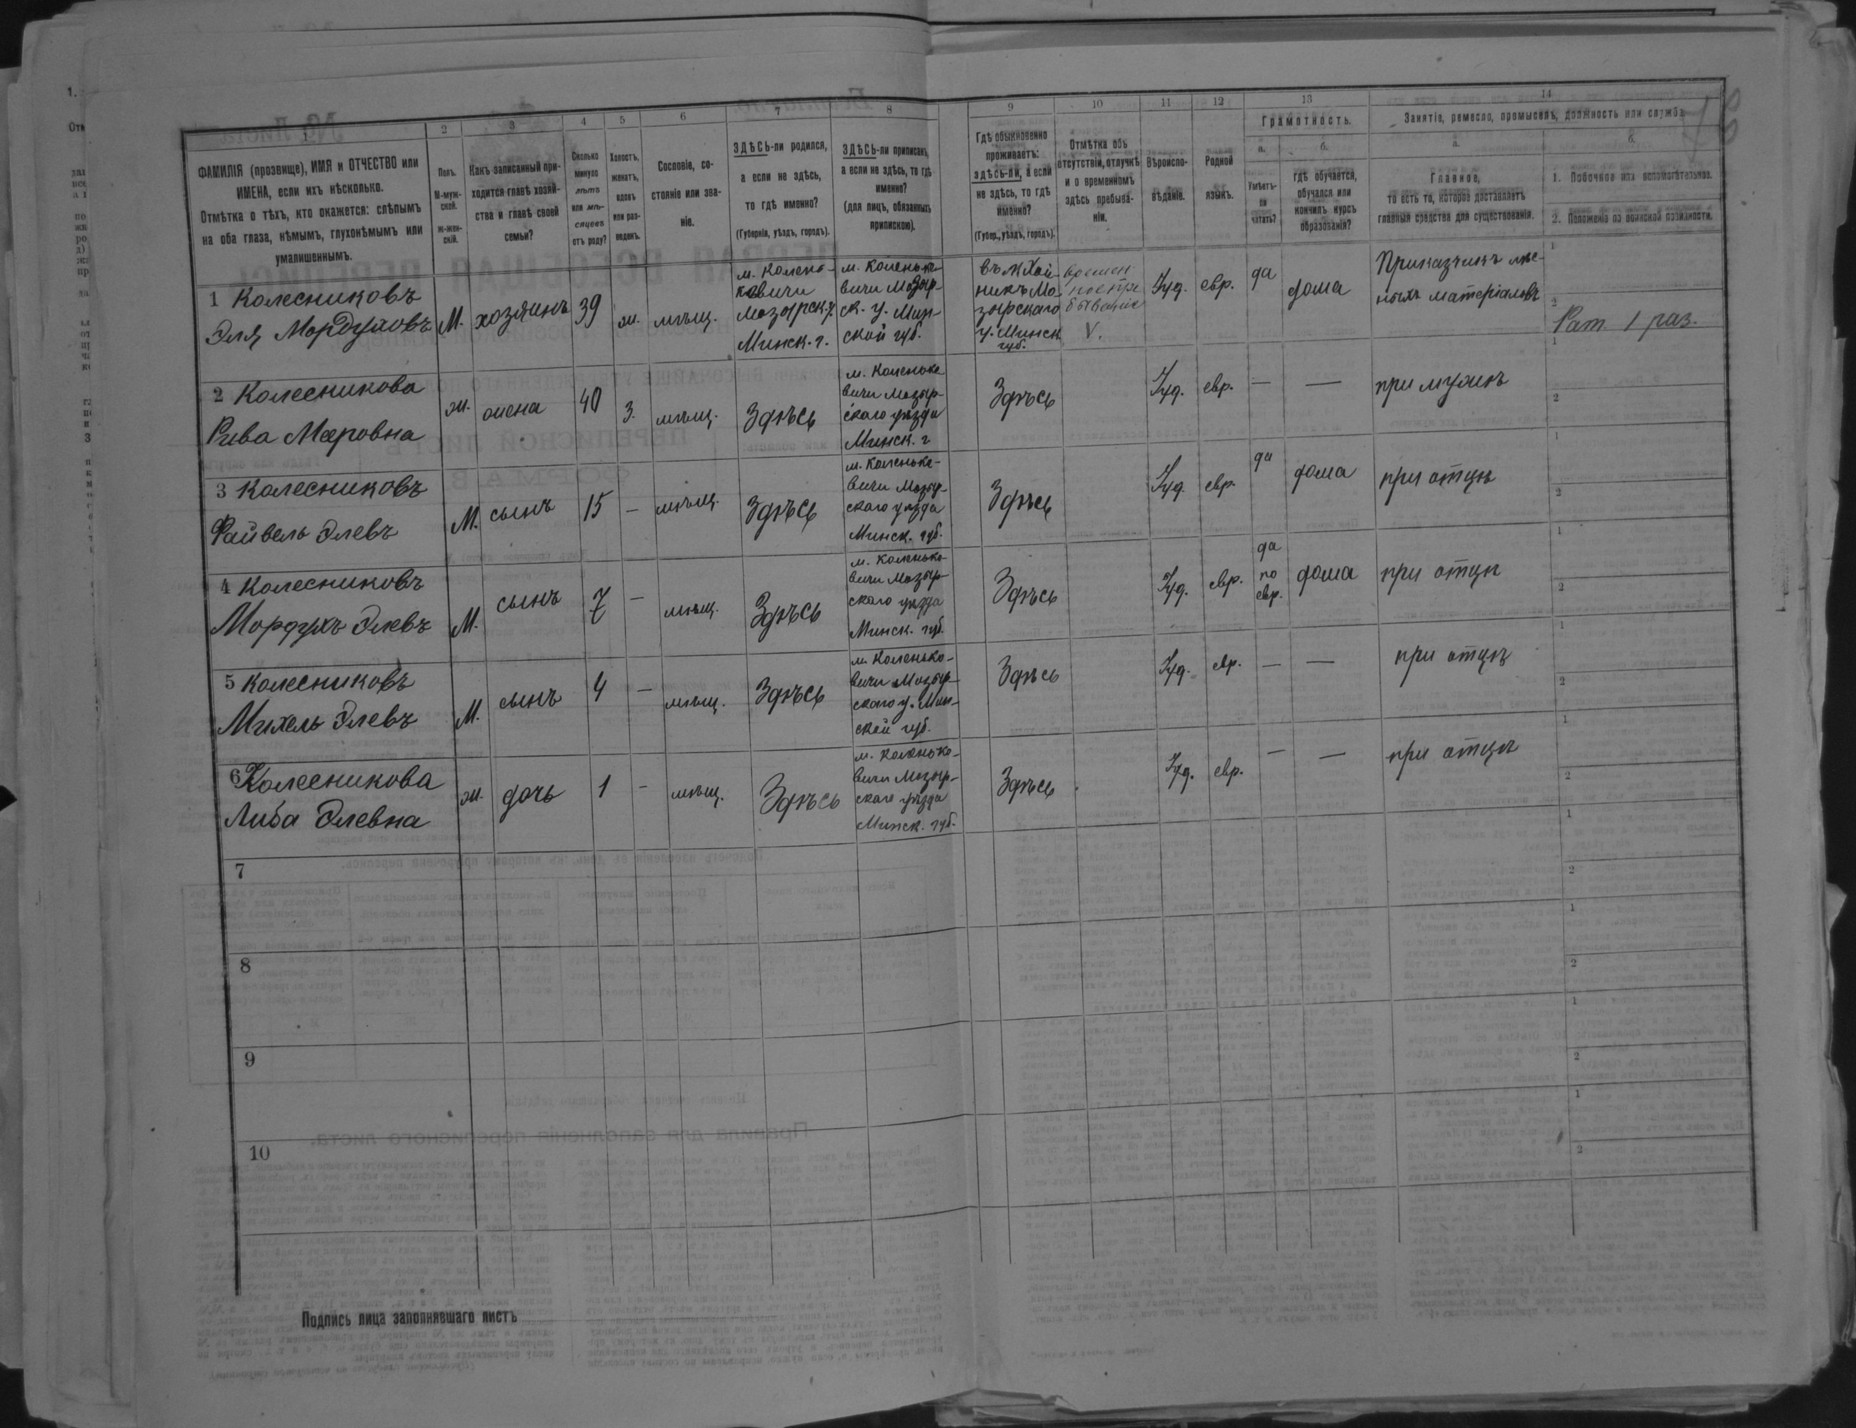 1 2 3 4 5 6 7 8 9 10 11 12 13 14
ФАМИЛІЯ (прозвище), ИМЯ и ОТЧЕСТВО или
ИМЕНА, если ихъ нѣсколько.
Отмѣтка о тѣхъ, кто окажется: слѣпымъ
на оба глаза, нѣмымъ, глухонѣмымъ или
умалишеннымъ.
Полъ.
М-муж-
ской.
ж-жен-
скій.
Какъ записанный при-
ходится главѣ хозяй-
ства и главѣ своей
семьи?
Сколько
минуло
лѣтъ
или мѣ-
сяцевъ
отъ роду?
Холостъ,
женатъ,
вдовъ
или раз-
веденъ.
Сословіе, со-
стояніе или зва-
ніе.
ЗДѢСЬ-ли родился,
а если не здѣсь,
то гдѣ именно?
(Губернія, уѣздъ, городъ).
ЗДѢСЬ-ли приписанъ,
а если не здѣсь, то гдѣ
именно?
(для лицъ, обязанныхъ
припискою).
Гдѣ обыкновенно
проживаетъ:
здѣсь-ли, а если
не здѣсь, то гдѣ
именно?
(Губер., уѣздъ, городъ).
Отмѣтка объ
отсутствіи, отлучкѣ
и о временномъ
здѣсь пребыва-
ніи.
Вѣроиспо-
вѣданіе.
Родной
языкъ.
Грамотность.
а.
Умѣетъ-
ли
читать?
б.
гдѣ обучается,
обучался или
кончилъ курсъ
образованія?
Занятіе, ремесло, промыселъ, должность или служба
а.
Главное,
то есть то, которое доставляетъ
главныя средства для существованія.
б.
1. Побочное или вспомогательное.
2. Положеніе по воинской повинности.
1 Колесниковъ
Эля Мордуховъ
М.
хозяинъ
39
ж.
мѣщ.
м. Колень-
ковичи
Мозырск. у.
Минск. г.
м. Коленько-
вичи Мозыр-
ск. у. Мин-
ской губ.
въ м. Хой-
никъ Мо-
зырскаго
у. Минск.
губ.
времен
ное пре
бываніе
V.
Іуд.
евр.
да
дома
Приказчикъ лѣс-
ныхъ матеріаловъ
Рат. 1 раз.
2 Колесникова
Рива Мееровна
ж.
жена
40
З.
мѣщ.
Здѣсь
м. Коленько
вичи Мозыр-
скаго уѣзда
Минск. г
Здѣсь
Іуд.
евр.
—
—
при мужѣ
3 Колесниковъ
Файвель Элевъ
М.
сынъ
15
—
мѣщ.
Здѣсь
м. Коленько-
вичи Мозыр-
скаго уѣзда
Минск. губ.
Здѣсь
Іуд.
евр.
да
дома
при отцѣ
4 Колесниковъ
Мордухъ Элевъ
М.
сынъ
7
—
мѣщ.
Здѣсь
м. Коленько-
вичи Мозыр-
скаго уѣзда
Минск. губ.
Здѣсь
Іуд.
евр.
да
по
евр.
дома
при отцѣ
5 Колесниковъ
Михель Элевъ
М.
сынъ
4
—
мѣщ.
Здѣсь
м. Коленько-
вичи Мозыр-
скаго у. Мин-
ской губ.
Здѣсь
Іуд.
евр.
—
—
при отцѣ
6 Колесникова
Либа Элевна
ж.
дочь
1
—
мѣщ.
Здѣсь
м. Коленько-
вичи Мозыр-
скаго уѣзда
Минск. губ.
Здѣсь
Іуд.
евр.
—
—
при отцѣ
7
8
9
10
Подпись лица заполнявшаго листъ